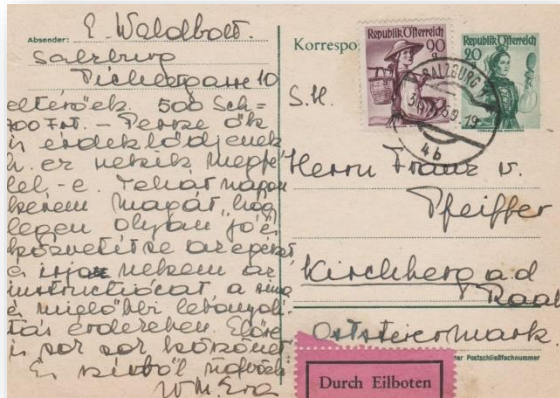 Absender: E. Waldbott.
Salzburg
Pichlergasse 10
eltérőek. 500 Sch =
700 Frt. - Persze ők
is érdeklődjenek
h. ez nekik megfe
lel,-e. Tehát nagyon
kérem magát, hog
legyen olyan jó és
közvetítse az egészet
és írjon nekem az
instructiócat a sima
és mielőbbi lebonyoli-
tás érdekében. Előre
is sok sok köszönet
És szívből üdvözli
Korrespo
Republik Österreich
90
Republik Österreich
20
SALZBURG
4b
S.H.
Herrn Franz v.
Pfeiffer
Kirchberg a.d.
Raab
Oststeiermark.
Durch Eilboten